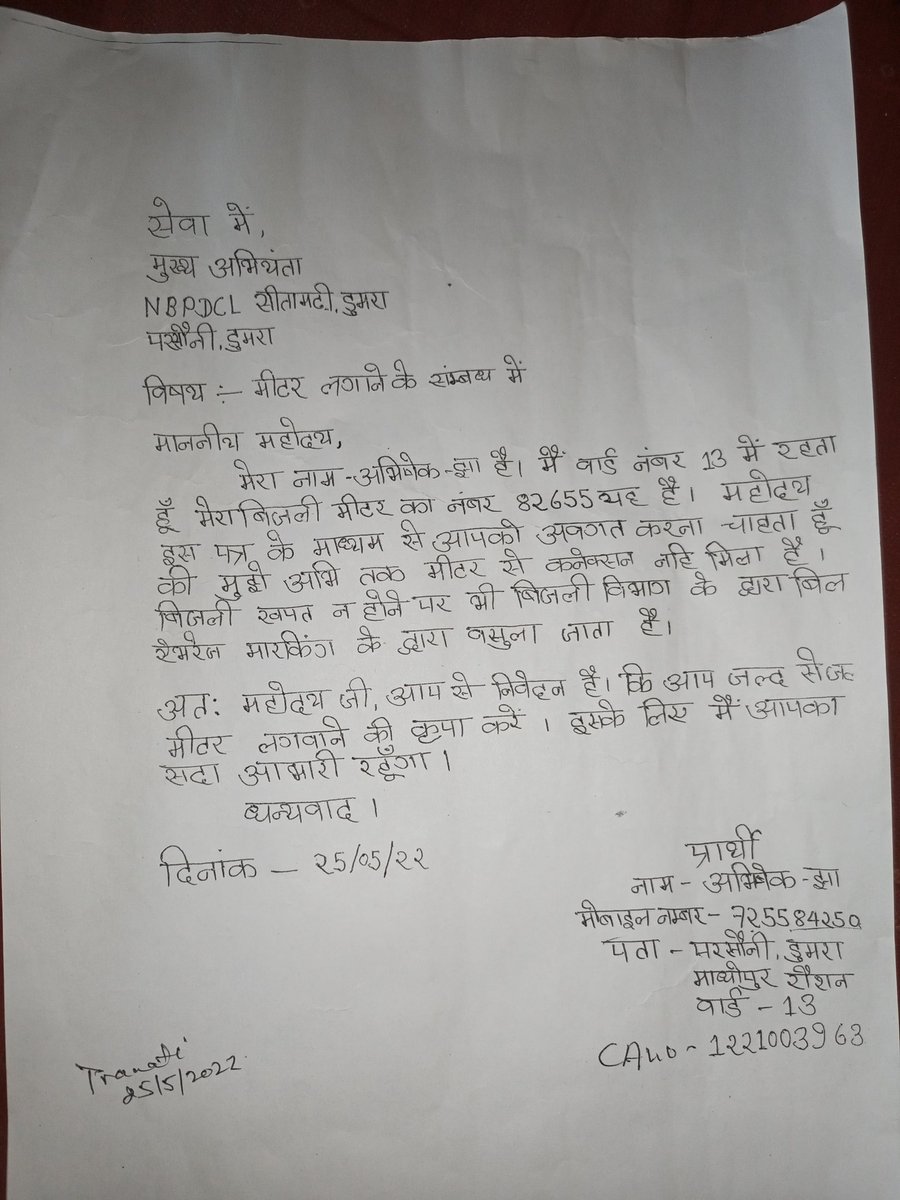 सेवा में,
मुख्य अभियंता
NBPDCL सीतामढी, डुमरा
परसौनी, डुमरा
विषय :- मीटर लगाने के संम्बध में
माननीय महोदय,
मेरा नाम - अभिषेक - झा है। मैं वार्ड नंबर 13 में रहता
हूँ मेरा बिजली मीटर का नंबर 82655 यह है। महोदय
इस पत्र के माध्यम से आपको अवगत करना चाहता हूँ
की मुझे अभि तक मीटर से कनेक्सन नहि मिला है।
बिजली खपत न होने पर भी बिजली विभाग के द्वारा बिल
मारकिंग के द्वारा वसुला जाता है।
अत: महोदय जी, आप से निवेदन है। कि आप जल्द से
मीटर लगवाने की कृपा करें । इसके लिए मैं आपका
सदा आभारी रहूँगा ।
धन्यवाद ।
दिनांक - 25/05/22
प्रार्थी
नाम - अभिषेक - झा
मोबाइल नम्बर - 725584250
पता - परसौनी, डुमरा
माधोपुर रौशन
वार्ड - 13
CA no - 1221003963
25/5/2022